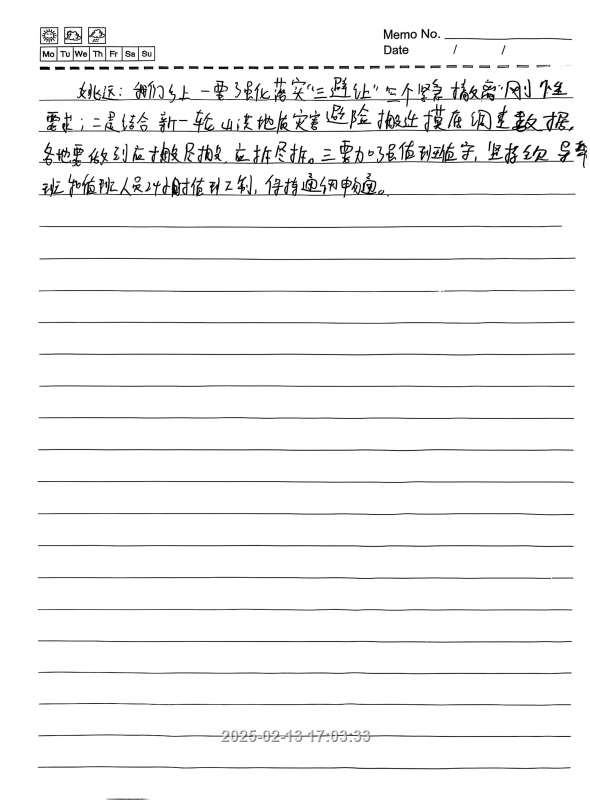 Memo No.
Mo Tu We Th Fr Sa Su
Date / /
姚远：我们乡上一要强化落实“三避让”“三个紧急撤离”刚性
要求；二是结合新一轮山洪地质灾害避险搬迁摸底调查数据，
各地要做到应搬尽搬，应拆尽拆。三要加强值班值守，坚持领导带
班和值班人员24小时值班工制，保持通讯畅通。
2025-02-13 17:03:33